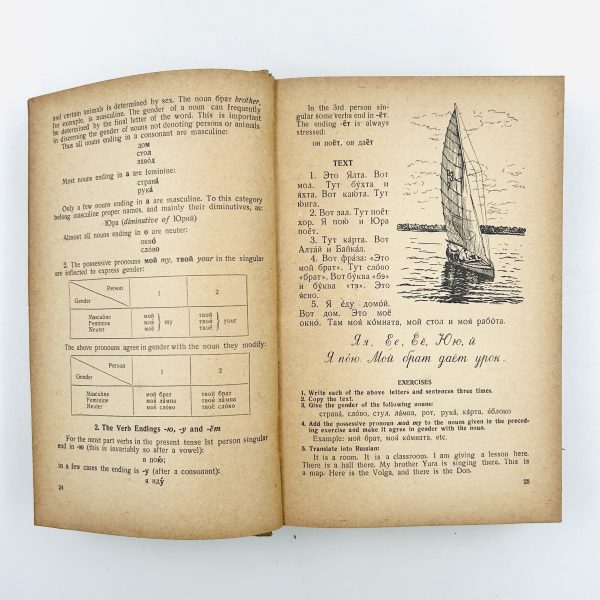 and certain animals is determined by sex. The noun брат brother,
for example, is masculine. The gender of a noun can frequently
be determined by the final letter of the word. This is important
in discerning the gender of nouns not denoting persons or animals.
Thus all nouns ending in a consonant are masculine:
дом
стол
заво́д
Most nouns ending in а are feminine:
страна́
рука́
Only a few nouns ending in а are masculine. To this category
belong masculine proper names, and mainly their diminutives, as:
Юра (diminutive of Юрий)
Almost all nouns ending in о are neuter:
окно́
сло́во
2. The possessive pronouns мой my, твой your in the singular
are inflected to express gender:
Person 1 2
Gender
Masculine мой твой
Feminine моя́ } my твоя́ } your
Neuter моё твоё
The above pronouns agree in gender with the noun they modify:
Person 1 2
Gender
Masculine мой брат твой брат
Feminine моя́ ла́мпа твоя́ ла́мпа
Neuter моё сло́во твоё сло́во
2. The Verb Endings -ю, -у and -ёт
For the most part verbs in the present tense 1st person singular
end in -ю (this is invariably so after a vowel):
я пою́
in a few cases the ending is -у (after a consonant):
я иду́
24
In the 3rd person sin-
gular some verbs end in -ёт.
The ending -ёт is always
stressed:
он поёт, он даёт
TEXT
1. Это Я́лта. Вот
мол. Тут бу́хта и
я́хта. Вот каю́та. Тут
ю́нга.
2. Вот зал. Тут поёт
хор. Я пою́ и Ю́ра
поёт.
3. Тут ка́рта. Вот
Алта́й и Байка́л.
4. Вот фра́за: «Это
мой брат». Тут сло́во
«брат». Вот бу́ква «бэ»
и бу́ква «тэ». Это
я́сно.
5. Я е́ду домо́й.
Вот дом. Это моё
окно́. Там моя́ ко́мната, мой стол и моя́ рабо́та.
Яя, Ее, Её, Юю, й
Я пою. Мой брат даёт урок.
EXERCISES
1. Write each of the above letters and sentences three times.
2. Copy the text.
3. Give the gender of the following nouns:
страна́, сло́во, стул, ла́мпа, рот, рука́, ка́рта, я́блоко
4. Add the possessive pronoun мой my to the nouns given in the preced-
ing exercise and make it agree in gender with the noun.
Example: мой брат, моя́ ко́мната, etc.
5. Translate into Russian:
It is a room. It is a classroom. I am giving a lesson here.
There is a hall there. My brother Yura is singing there. This is
a map. Here is the Volga, and there is the Don.
25